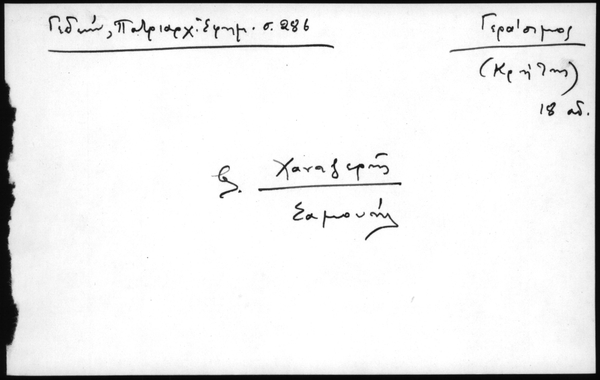 Γεδεών, Πατριαρχ. Εφημ. σ. 286
Γεράσιμος
(Κρήτης)
18 αδ.
β. Χαντζερῆς
Σαμουήλ